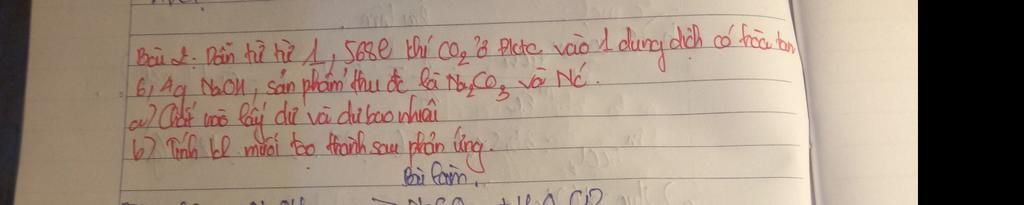 Bài 2: Dẫn từ từ 1,568l khí CO2 ở đktc vào 1 dung dịch có hòa tan
6,4g NaOH, sản phẩm thu đc là Na2CO3 và Nc.
a) Chất nào lấy dư và dư bao nhiêu
b) Tính kl muối tạo thành sau phản ứng.
Bài làm.